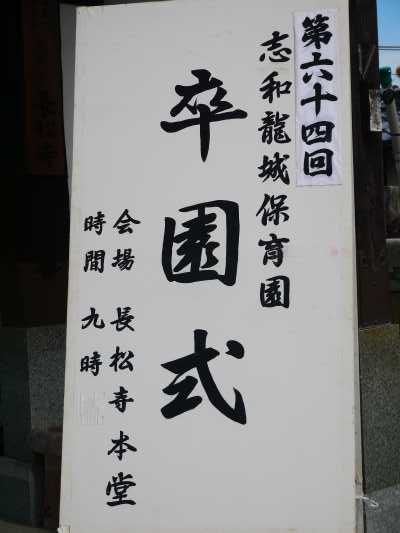 第六十四回
志和龍城保育園
卒園式
会場 長松寺本堂
時間 九時
長松寺